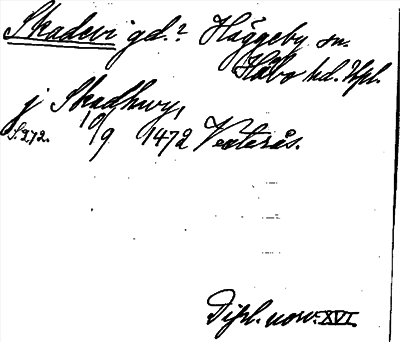 Skadevi gd.? Häggeby sn.
Håbo hd. Upl.
j Skadhwy,
S. 272. 10/9 1472 Vesterås.
Dipl. norv. XVI.